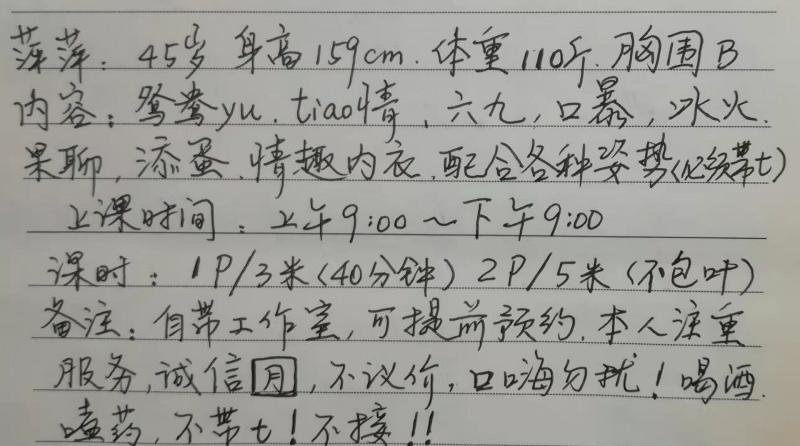 萍萍：45岁 身高159cm. 体重110斤. 胸围B
内容：鸳鸯yu. tiao情, 六九, 口暴, 冰火.
果聊, 添蛋. 情趣内衣. 配合各种姿势(必须带t)
上课时间：上午9:00～下午9:00
课时：1P/3米(40分钟) 2P/5米(不包叶)
备注：自带工作室, 可提前预约. 本人注重
服务, 诚信月, 不议价, 口嗨勿扰！喝酒.
嗑药, 不带t！不接!!